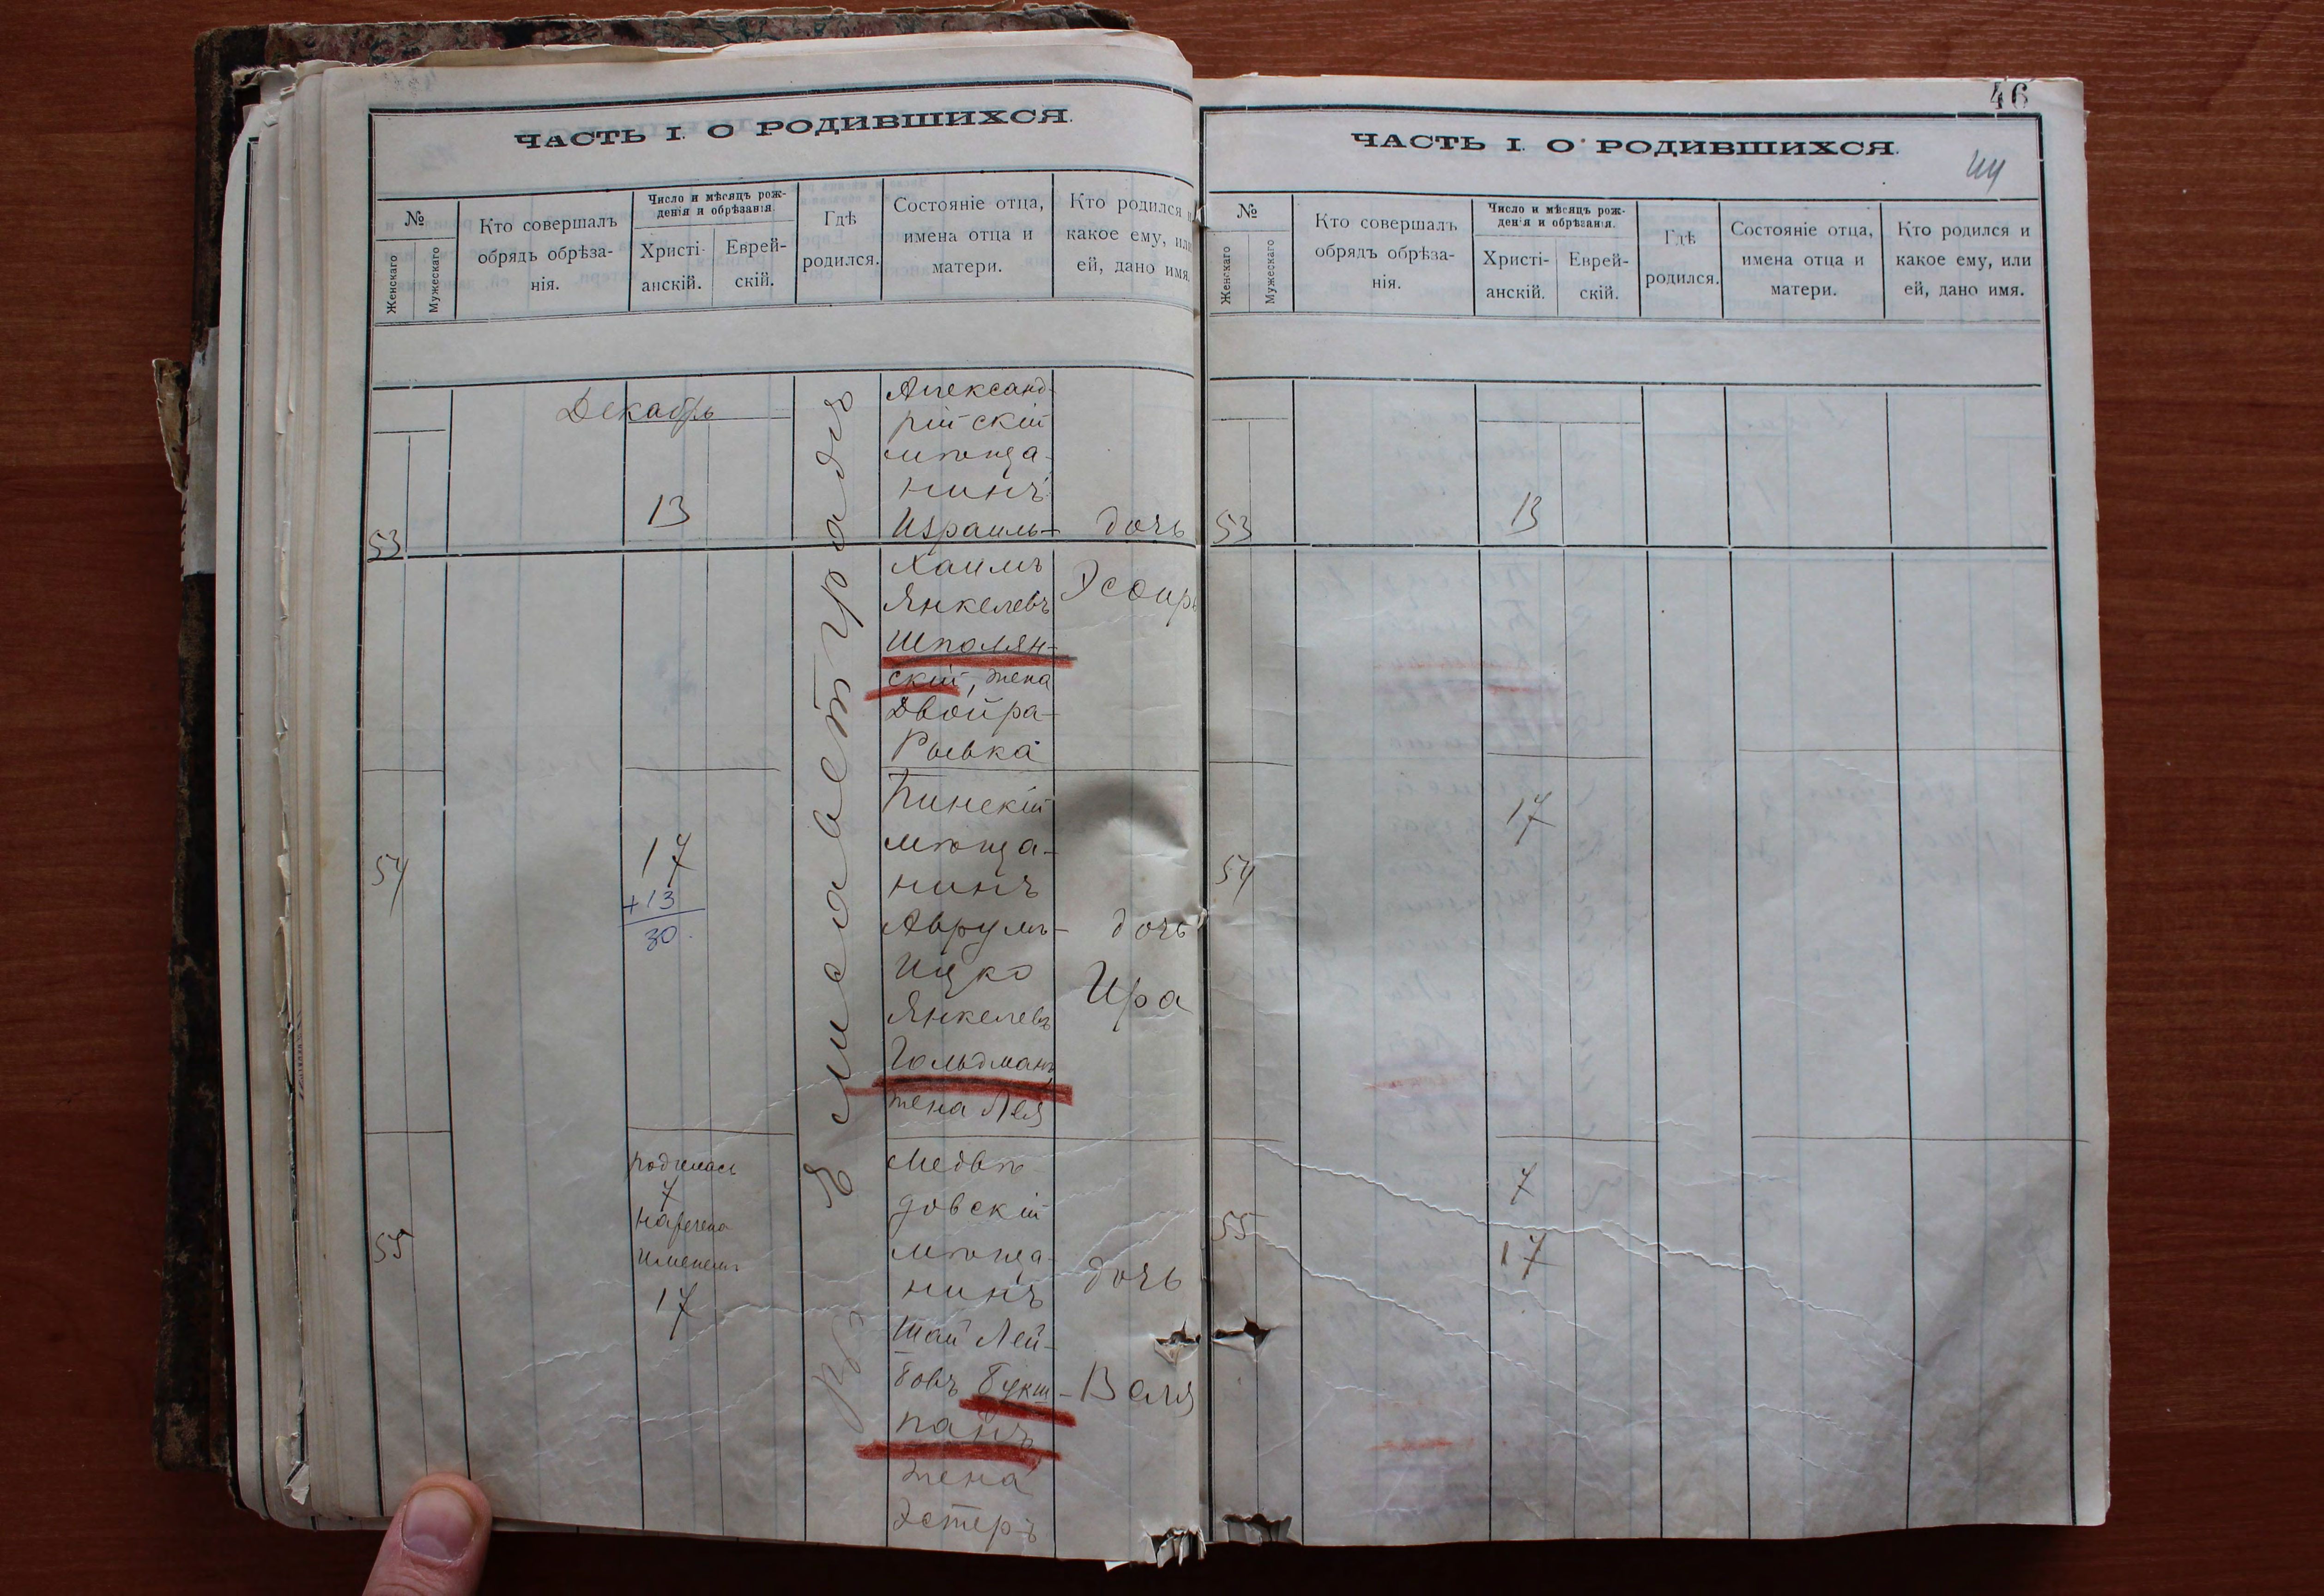 ЧАСТЬ I. О РОДИВШИХСЯ.
№
Женскаго
Мужескаго
Кто совершалъ
обрядъ обрѣза-
нія.
Число и мѣсяцъ рож-
денія и обрѣзанія.
Христі-
анскій.
Еврей-
скій.
Гдѣ
родился.
Состояніе отца,
имена отца и
матери.
Кто родился и
какое ему, или
ей, дано имя.
Декабрь
Въ Елисаветградѣ
53
13
Александ-
рійскій
мѣща-
нинъ
Израиль-
Хаимъ
Янкелевъ
Шполян-
скій, жена
Двойра-
Рывка
дочь
Эсѳирь
54
17
+13
30
Пинскій
мѣща-
нинъ
Аврумъ-
Ицко
Янкелевъ
Гольдманъ,
жена Лея
дочь
Ира
55
родилась
7
наречена
именемъ
17
Медвѣ-
довскій
мѣща-
нинъ
Шая Лей-
бовъ Букш-
панъ,
жена
Эстеръ
дочь
Валя
46
44
ЧАСТЬ I. О РОДИВШИХСЯ.
№
Женскаго
Мужескаго
Кто совершалъ
обрядъ обрѣза-
нія.
Число и мѣсяцъ рож-
денія и обрѣзанія.
Христі-
анскій.
Еврей-
скій.
Гдѣ
родился.
Состояніе отца,
имена отца и
матери.
Кто родился и
какое ему, или
ей, дано имя.
53
13
54
17
55
7
17